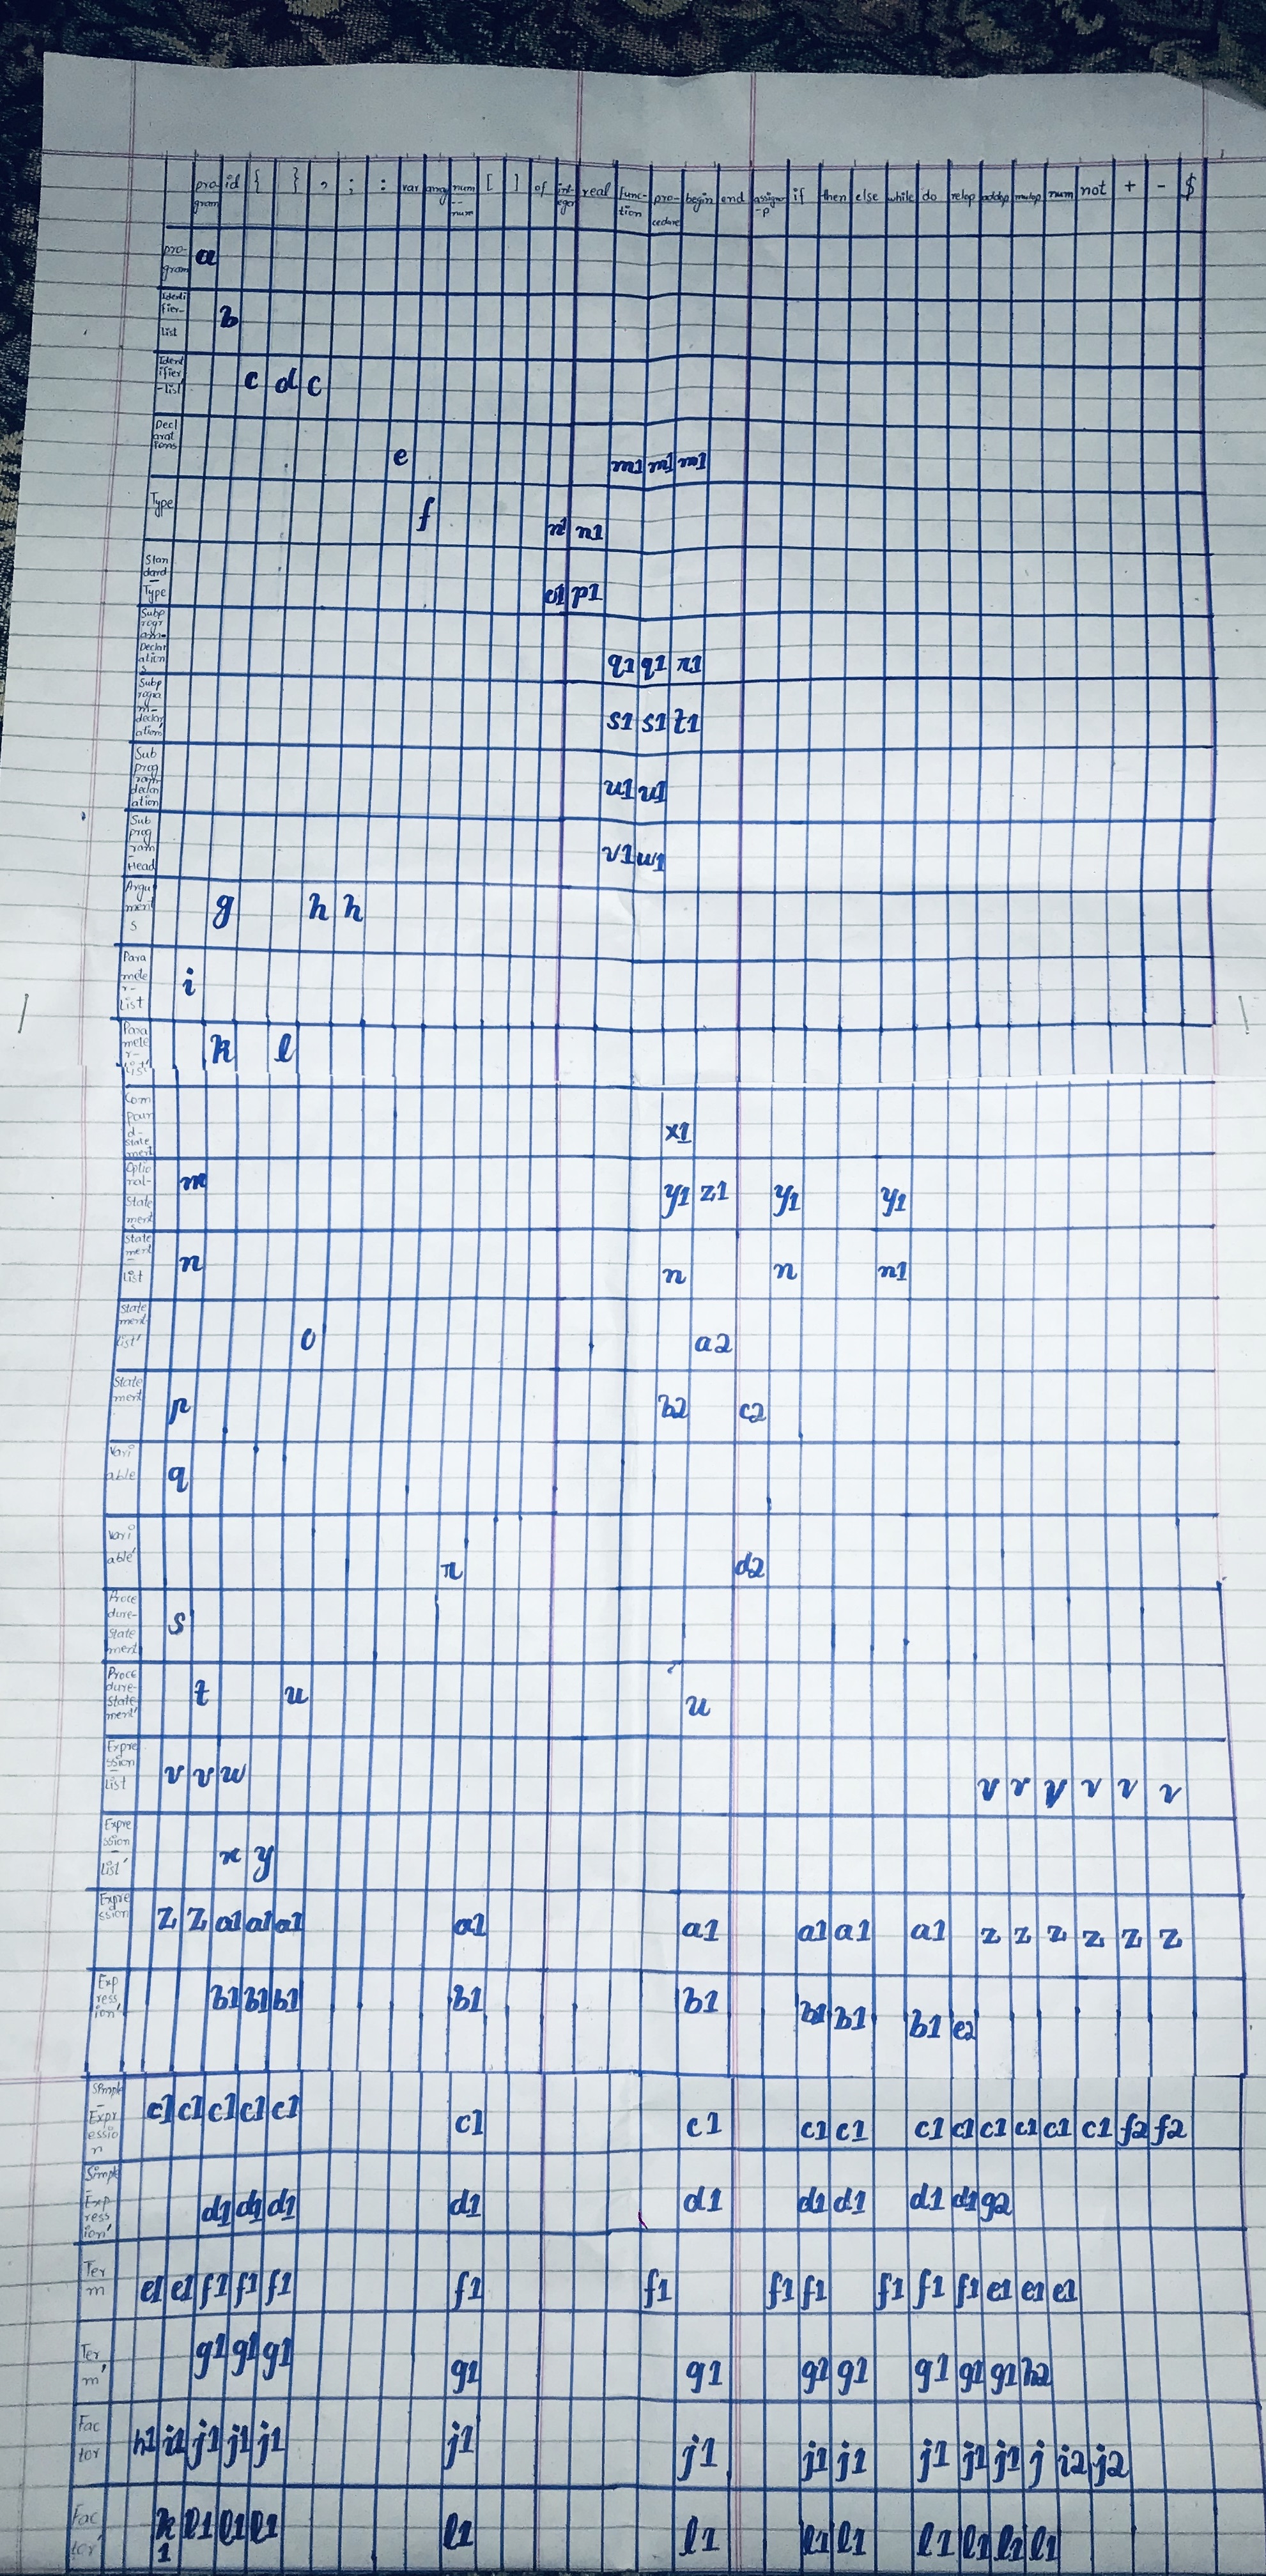 pro-gram id { } , ; : var array num--num [ ] of int-eger real func-tion pro-cedure begin end assigno-p if then else while do relop addop mulop num not + - $
pro-gram a
Identifier-list b
Identifier-list' c d c
Declarations e m1 m1 m1
Type f n1 n1
Standard-Type o1 p1
Subprogram-Declarations q1 q1 r1
Subprogram-declarations' s1 s1 t1
Subprogram declaration u1 u1
Subprogram-Head v1 w1
Arguments g h h
Parameter-List i
Parameter-List' k l
Compound-statement x1
Optional-Statements m y1 z1 y1 y1
Statement-list n n n n1
Statement-list' o a2
Statement p b2 c2
Variable q
Variable' r d2
Procedure-statement s
Procedure-statement' t u u
Expression-List v v w v v v v v v
Expression-list' x y
Expression z z a1 a1 a1 a1 a1 a1 a1 a1 z z z z z z
Expression' b1 b1 b1 b1 b1 b1 b1 b1 e2
Simple-Expression c1 c1 c1 c1 c1 c1 c1 c1 c1 c1 c1 c1 c1 c1 c1 f2 f2
Simple-Expression' d1 d1 d1 d1 d1 d1 d1 d1 d1 g2
Term e1 e1 f1 f1 f1 f1 f1 f1 f1 f1 f1 f1 e1 e1 e1
Term' g1 g1 g1 g1 g1 g1 g1 g1 g1 g1 h2
Factor h1 i1 j1 j1 j1 j1 j1 j1 j1 j1 j1 j1 j i2 j2
Factor' k1 l1 l1 l1 l1 l1 l1 l1 l1 l1 l1 l1